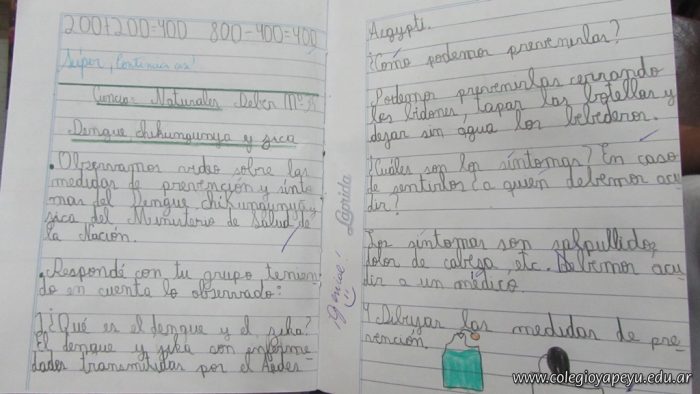 200+200=400 800-400=400
Súper, Continua así!
Ciencias Naturales Deber Nº
Dengue chikungunya y zica
• Observamos video sobre las
medidas de prevención y sínto
mas del Dengue chikungunya y
zica del Ministerio de Salud de
la Nación.
• Respondé con tu grupo tenien-
do en cuenta lo observado:
1 ¿Qué es el dengue y el zika?
El dengue y zika son enferme-
dades transmitidas por el Aedes
¡genial!
Aegypti.
¿Cómo podemos prevenirlas?
Podemos prevenirlas cerrando
los bidones, tapar las botellas y
dejar sin agua los bebederos.
¿Cuáles son los síntomas? En caso
de sentirlos ¿a quién debemos acu
dir?
Los síntomas son salpullido,
dolor de cabeza, etc. Debemos acu
dir a un médico.
4 Dibujar las medidas de pre-
vención.
www.colegioyapeyu.edu.ar